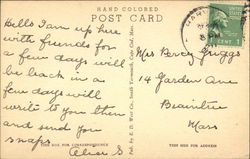 HAND COLORED
POST CARD
Hello I am up here
with friends for
a few days will
be back in a
few days will
write to you then
and send you
snaps
Alice S
Mrs Percy Griggs
14 Garden Ave
Braintree
Mass
THIS SIDE FOR CORRESPONDENCE
THIS SIDE FOR ADDRESS
Pub. by E. D. West Co., South Yarmouth, Cape Cod, Mass.